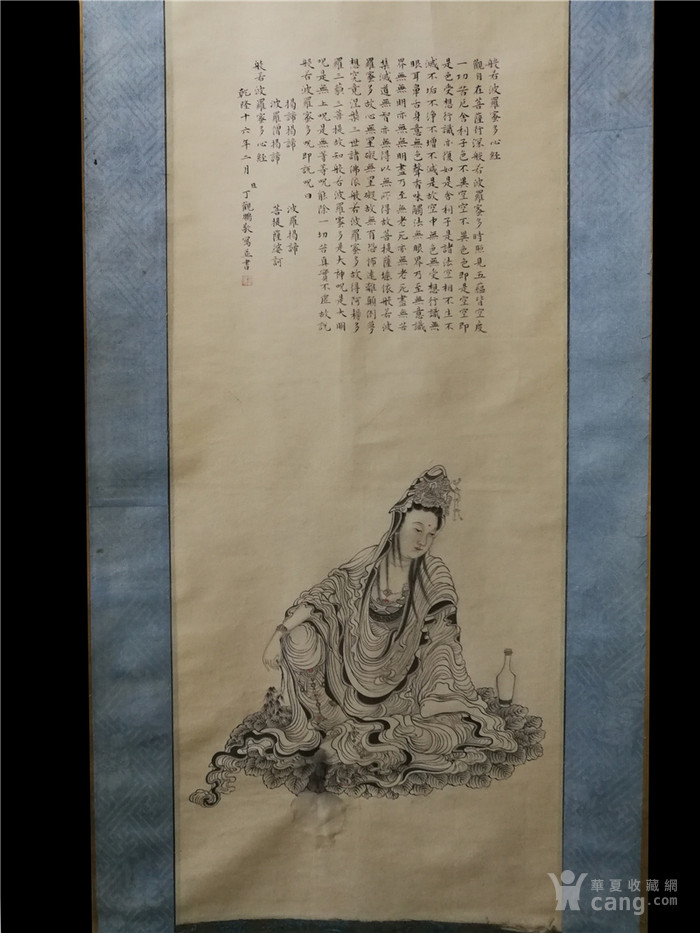 般若波羅蜜多心経
觀自在菩薩行深般若波羅蜜多時照見五蘊皆空度
一切苦厄舍利子色不異空空不異色色即是空空即
是色受想行識亦復如是舍利子是諸法空相不生不
滅不垢不淨不增不減是故空中無色無受想行識無
眼耳鼻舌身意無色聲香味觸法無眼界乃至無意識
界無無明亦無無明盡乃至無老死亦無老死盡無苦
集滅道無智亦無得以無所得故菩提薩埵依般若波
羅蜜多故心無罣礙無罣礙故無有恐怖遠離顛倒夢
想究竟涅槃三世諸佛依般若波羅蜜多故得阿耨多
羅三藐三菩提故知般若波羅蜜多是大神呪是大明
呪是無上呪是無等等呪能除一切苦真實不虛故說
般若波羅蜜多呪即說呪曰
揭諦揭諦 波羅揭諦
波羅僧揭諦 菩提薩婆訶
般若波羅蜜多心経
乾隆十六年二月 臣丁觀鵬敬寫並書
華夏收藏網
cang.com